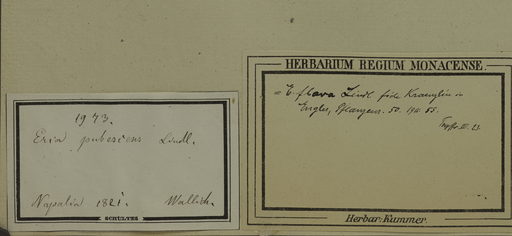 1973.
Eria pubescens Lindl.
Napalia 1821. Wallich.
SCHULTES
HERBARIUM REGIUM MONACENSE.
= E. flava Lindl. fide Kraenzlin in
Engler, Pflanzenr. 50. 1911. 55.
Herbar: Kummer.